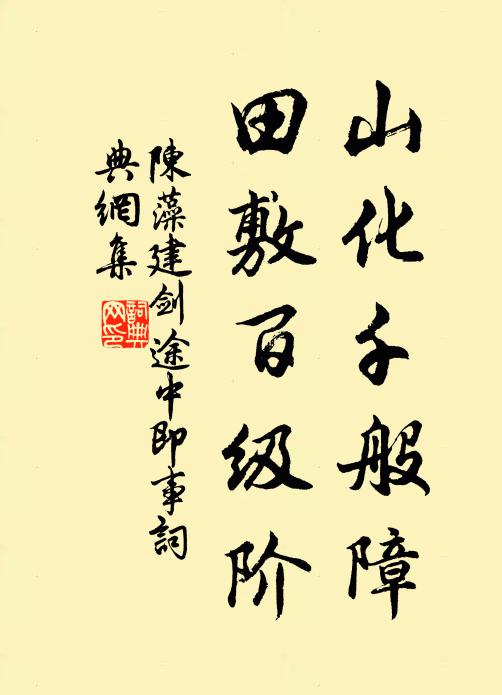 山化千般障
田敷百级阶
陳藻建剑途中即事詞
典網集
詞典
网印